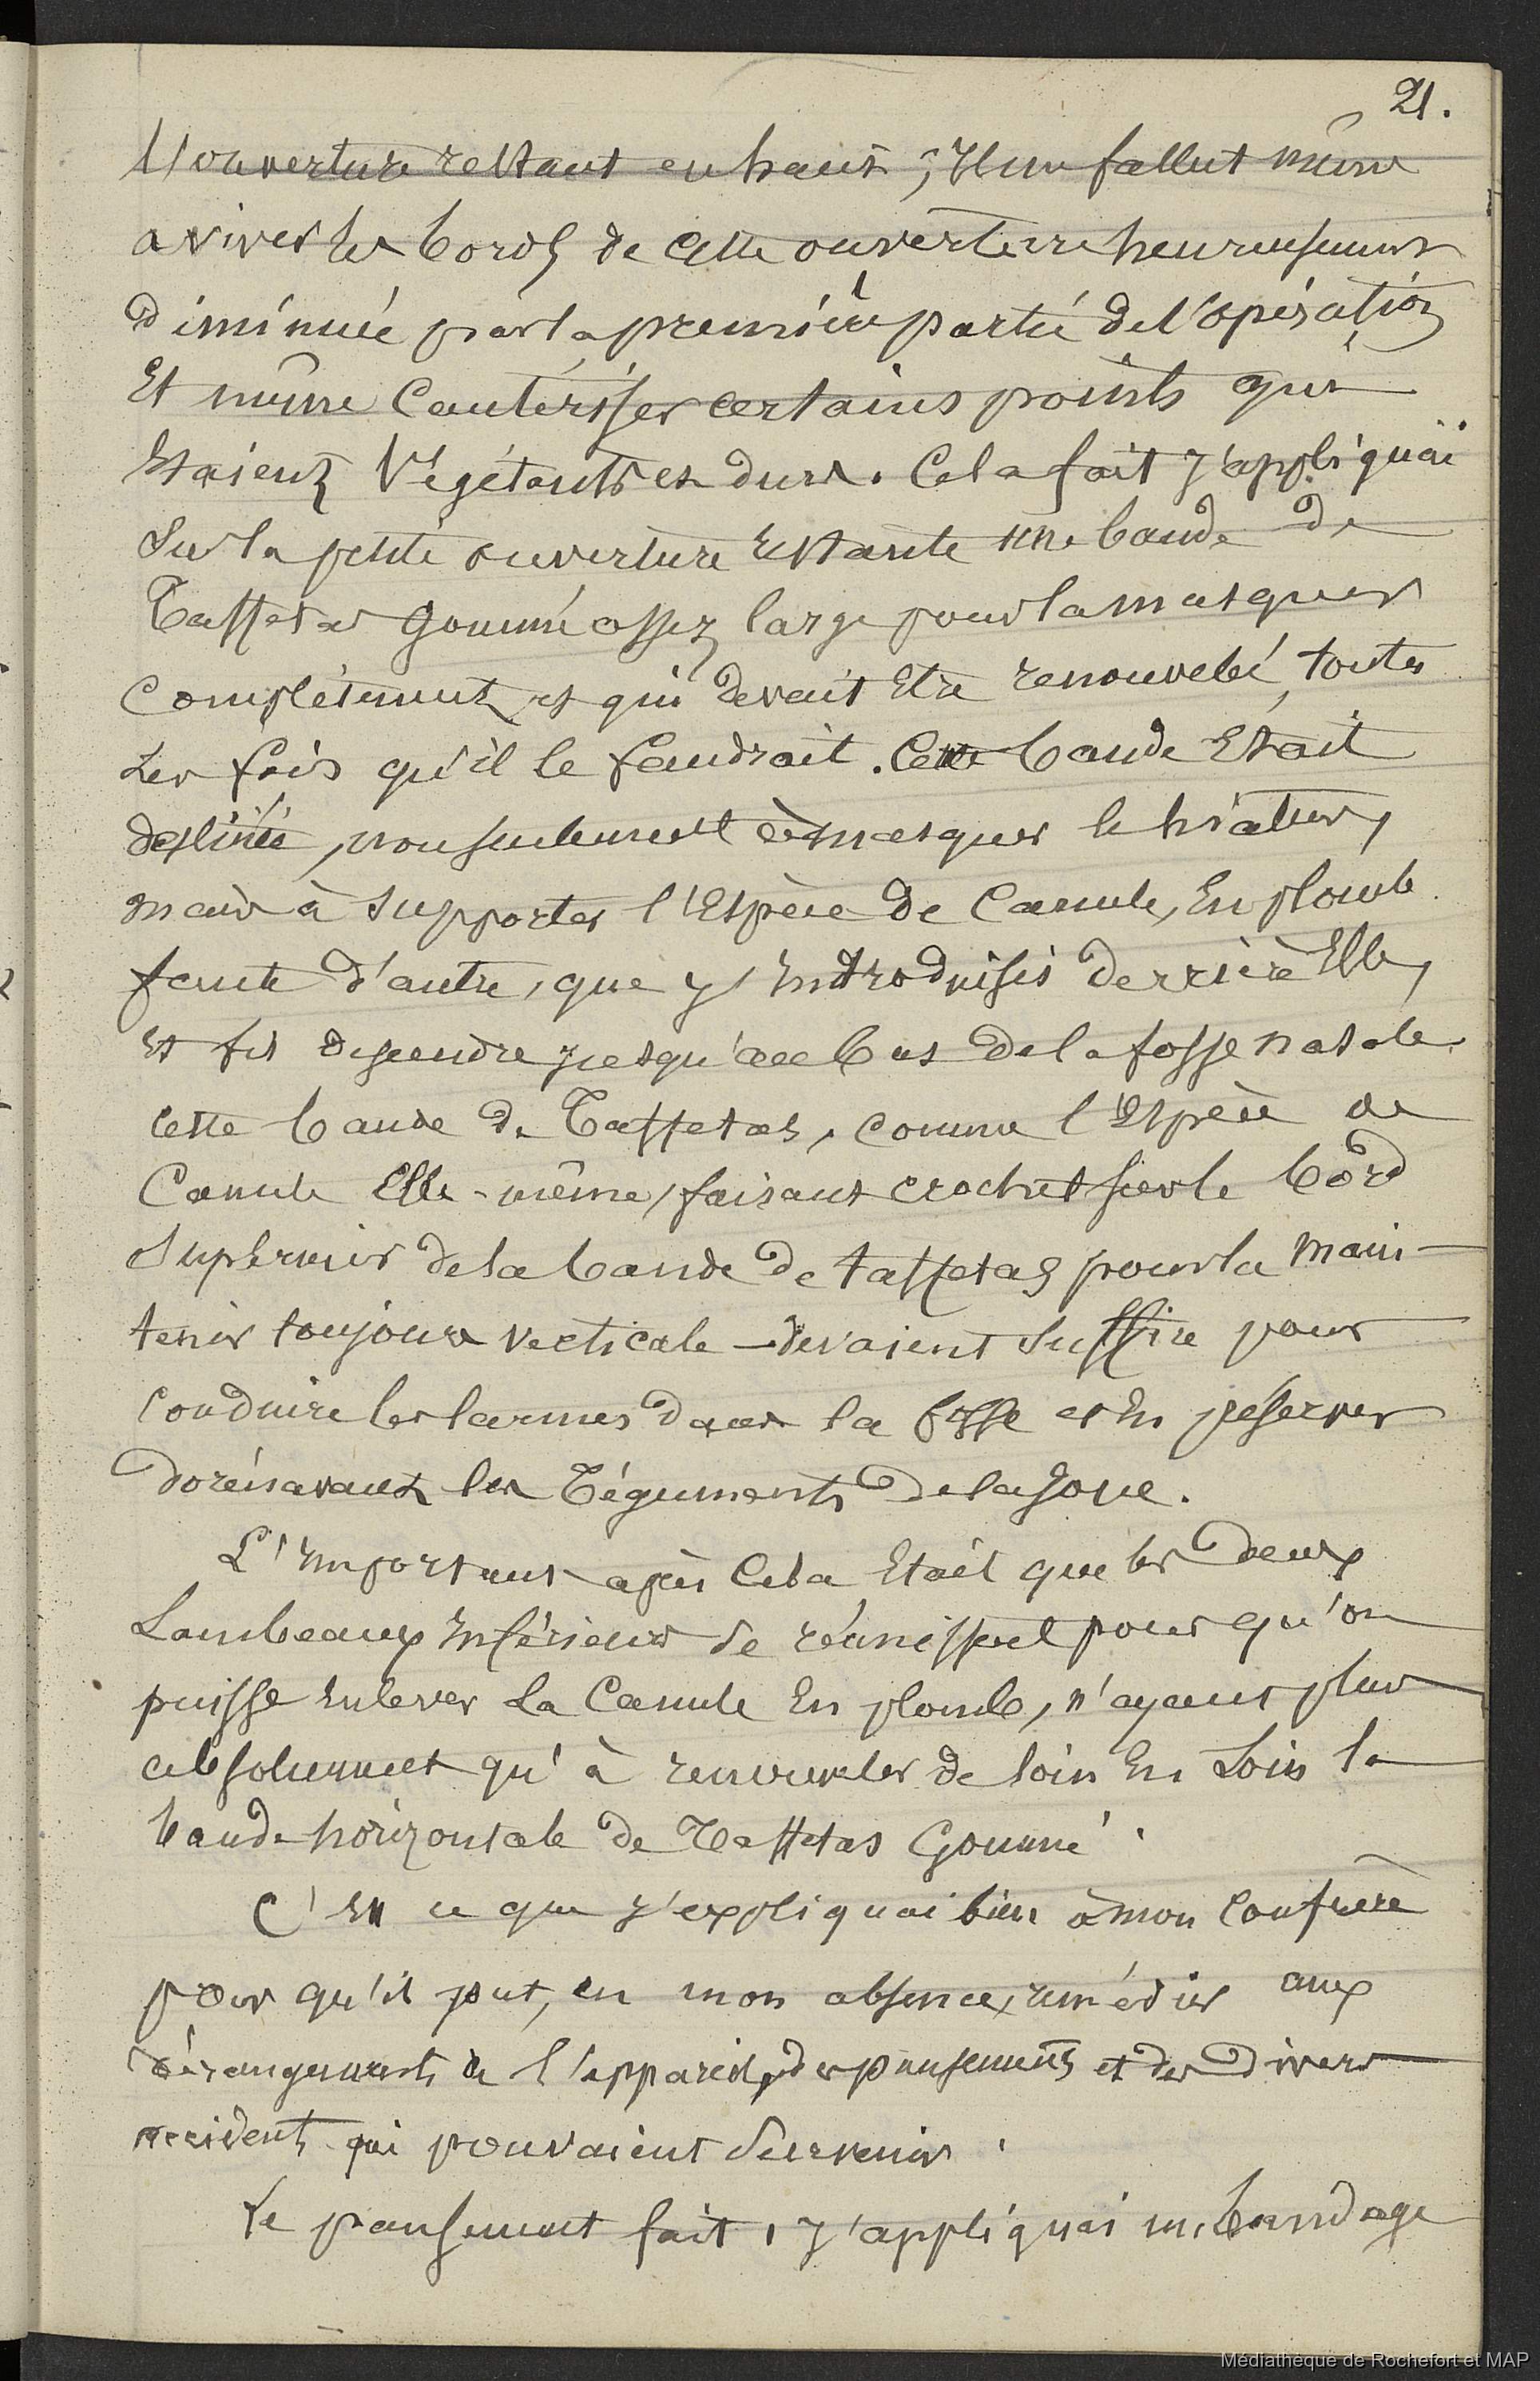 21.
l'ouverture restant en haut ; Il me fallut même
aviver les bords de cette ouverture heureusement
diminuée par la première partie de l'opération
Et même Cautériser certains points qui
Etaient Végétants et durs. Cela fait j'appliquai
Sur la petite ouverture restante une bande de
Taffetas Gommé assez large pour la masquer
complètement et qui devait Etre renouvelé, toutes
Les fois qu'il le faudrait. Cette bande Etait
destinée, non seulement à masquer le hiatus,
mais à supporter l'Espèce de Canule, En plomb
faute d'autre, que j'y Introduisis derrière Elle,
Et fis descendre jusqu'au bas de la fosse nasale.
Cette bande de Taffetas, comme l'Espèce de
Canule Elle-même, faisant crochet sur le bord
Supérieur de la bande de taffetas pour la main-
tenir toujours verticale — devaient Suffire pour
conduire les larmes dans la fosse et En préserver
dorénavant les Téguments de la Joue.
L'Important après Cela Etait que les deux
Lambeaux Inférieurs se réunissent pour qu'on
puisse Enlever La Canule En plomb, n'ayant plus
absolument qu'à renouveler de loin En Loin la
bande horizontale de Taffetas Gommé.
C'Est ce que j'expliquai bien à mon Confrère
pour qu'il put, en mon absence, remédier aux
dérangements de l'appareil, des pansements et des divers
accidents qui pouvaient Survenir.
Le pansement fait, j'appliquai un bandage
Médiathèque de Rochefort et MAP